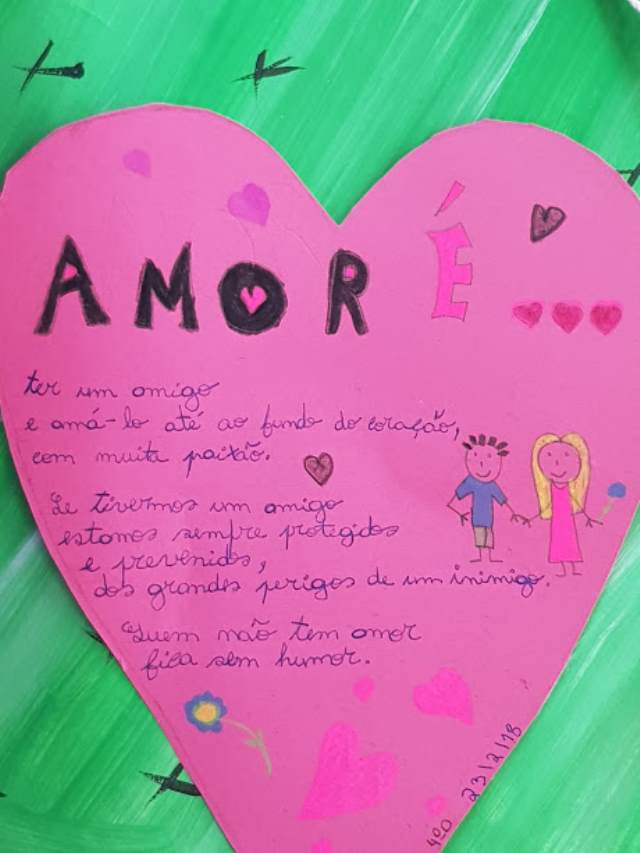 AMOR É...
ter um amigo
e amá-lo até ao fundo do coração,
com muita paixão.
Se tivermos um amigo
estamos sempre protegidos
e prevenidos,
dos grandes perigos de um inimigo.
Quem não tem amor
fica sem humor.
23/2/18